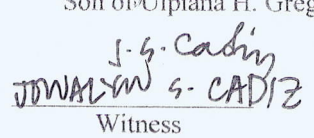 Son of Ulpiana H. Greg
J. S. Cadiz
JOWALYN S. CADIZ
Witness